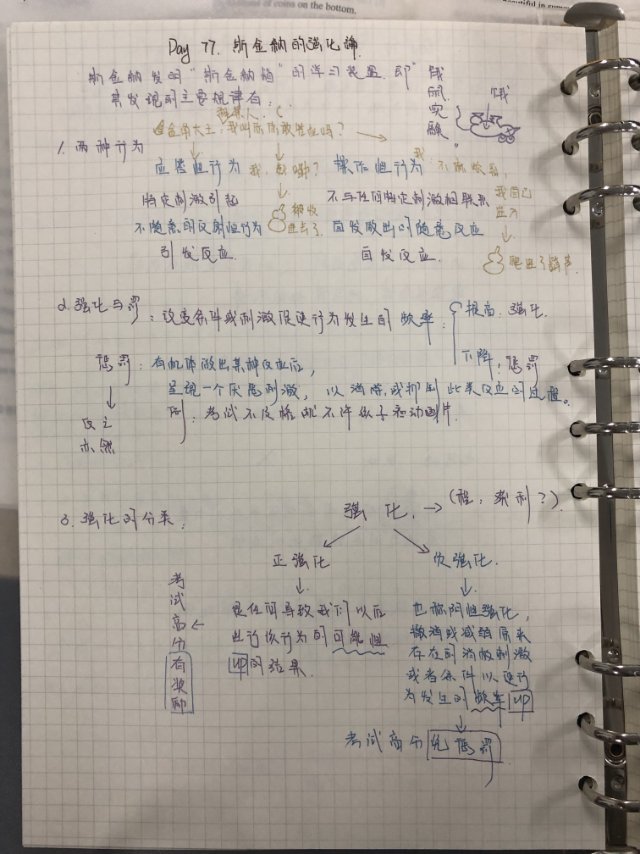 of coins on the bottom.
Day 77. 斯金纳的强化论
斯金纳发明"斯金纳箱"的学习装置.即"
饿鼠实验。
其发现的主要规律有:
1. 两种行为
金角大王:我叫你你敢答应吗?
应答性行为
操作性行为
特定刺激引起
不与任何特定刺激相联系
不随意的反射性行为
自发做出的随意反应
被收进去了
引发反应
自发反应.
2.强化与罚:改变条件或刺激促进行为发生的频率.
提高:强化
下降:惩罚
惩罚:有机体做出某种反应后,
呈现一个厌恶刺激,以消除或抑制此类反应的过程。
例:考试不及格就不许孩子看动画片.
反之亦然
3.强化的分类:
强化.→(程,奖利?)
正强化
负强化.
是任何导致我们以后
进行该行为的可能性
UP的结果.
考试高分有奖励
也称阴性强化,
撤消或减弱原来
存在的消极刺激
或者条件以使行
为发生的频率UP
考试高分免惩罚